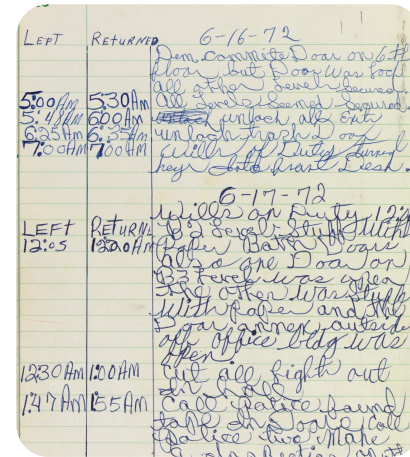 LEFT RETURNED 6-16-72
Dem. committe Doar on 6th
floor but Door Was
all other level secured.
5:00 Am 5:30 Am All levels seemed secured.
5:48 Am 6:00 Am unlock, all Exit
6:25 Am 6:35 Am unlock trash Doar
7:00 Am 7:00 Am Wills of Duty turned
keys into frant Desk.
6-17-72
Wills on Duty 12:
LEFT RETURN B2 Level Stuff With
12:05 1220 Am Paper Bath Doars
also one Doar on
B3 level was open
the other was Stuff
With Paper and the
Doar annex outside
off office bldg was
open
1230 Am 1:00 Am Cut all lights out
in
1:47 Am 1:55 Am Call Police found
tape on Doars Call
Police two make